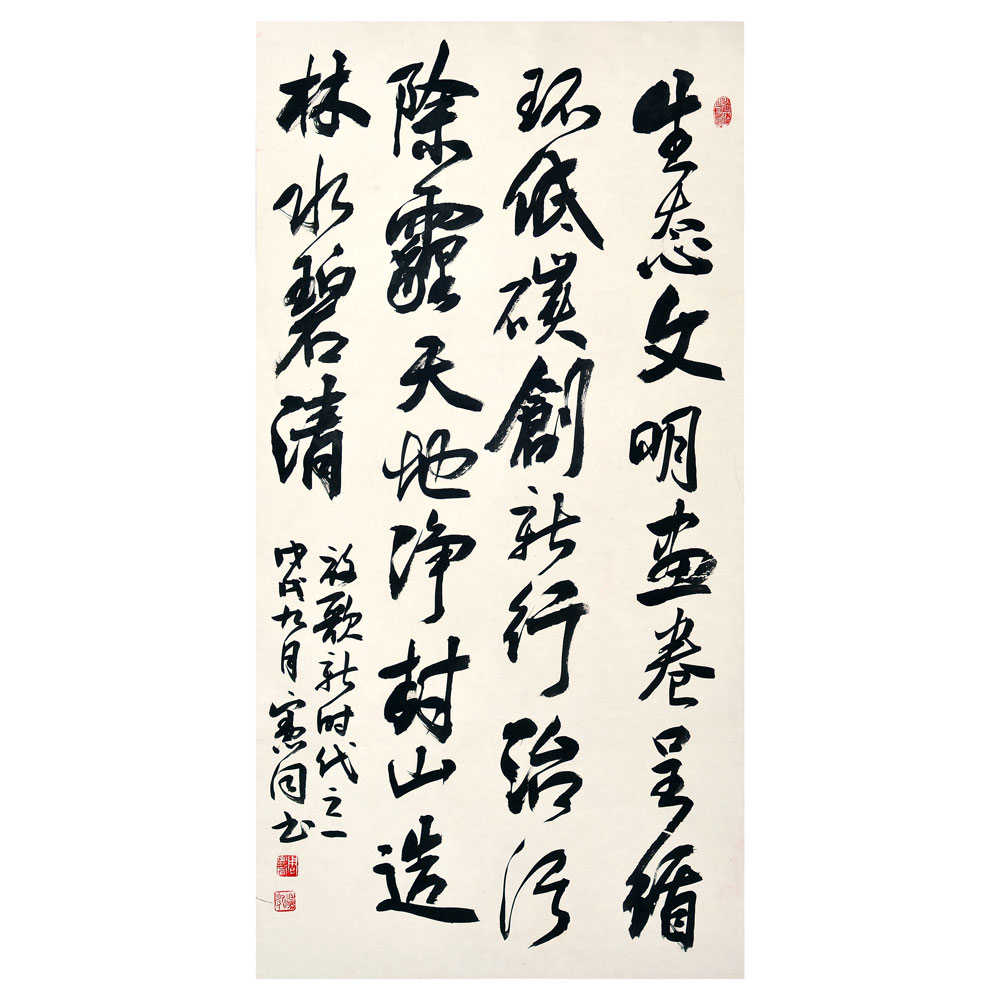 生态文明画卷呈循
环低碳創新行治污
除霾天地净封山造
林水碧清
放歌新时代之一
戊戌九月宪同书